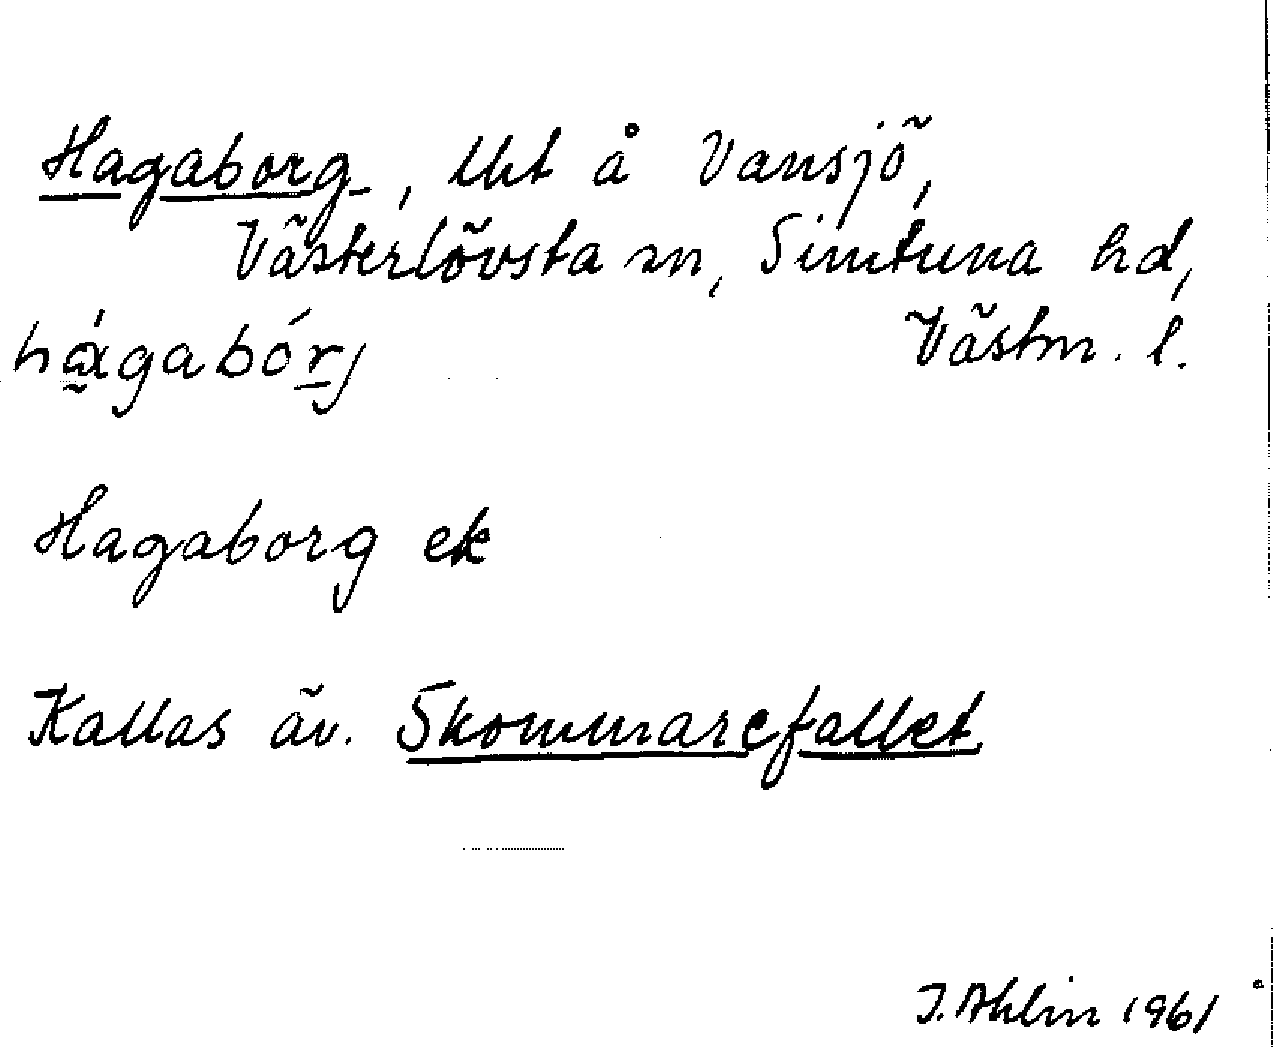 Hagaborg, lht å Vansjö,
Västerlövsta sn, Simtuna hd,
Västm. l.
hágabórj
Hagaborg ek
Kallas äv. Skommarefallet
J. Ahlin 1961